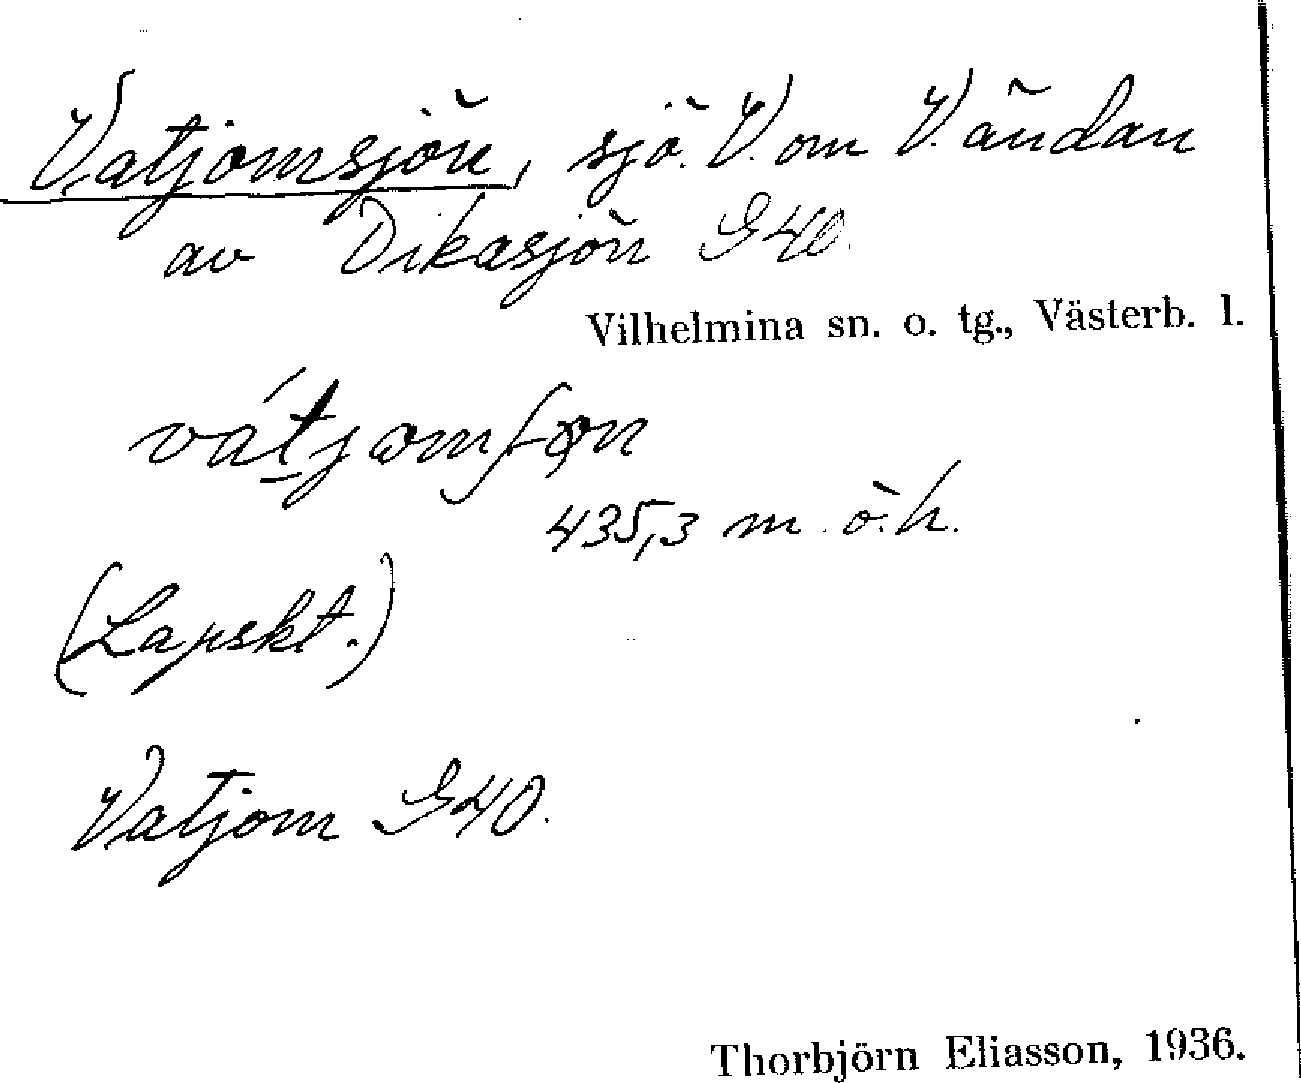 Vatjomsjön, sjö. V. om V. ändan
av Dikasjön G40.
Vilhelmina sn. o. tg., Västerb. l.
435,3 m. ö. h.
(Lapskt.)
Vatjom G40.
Thorbjörn Eliasson, 1936.